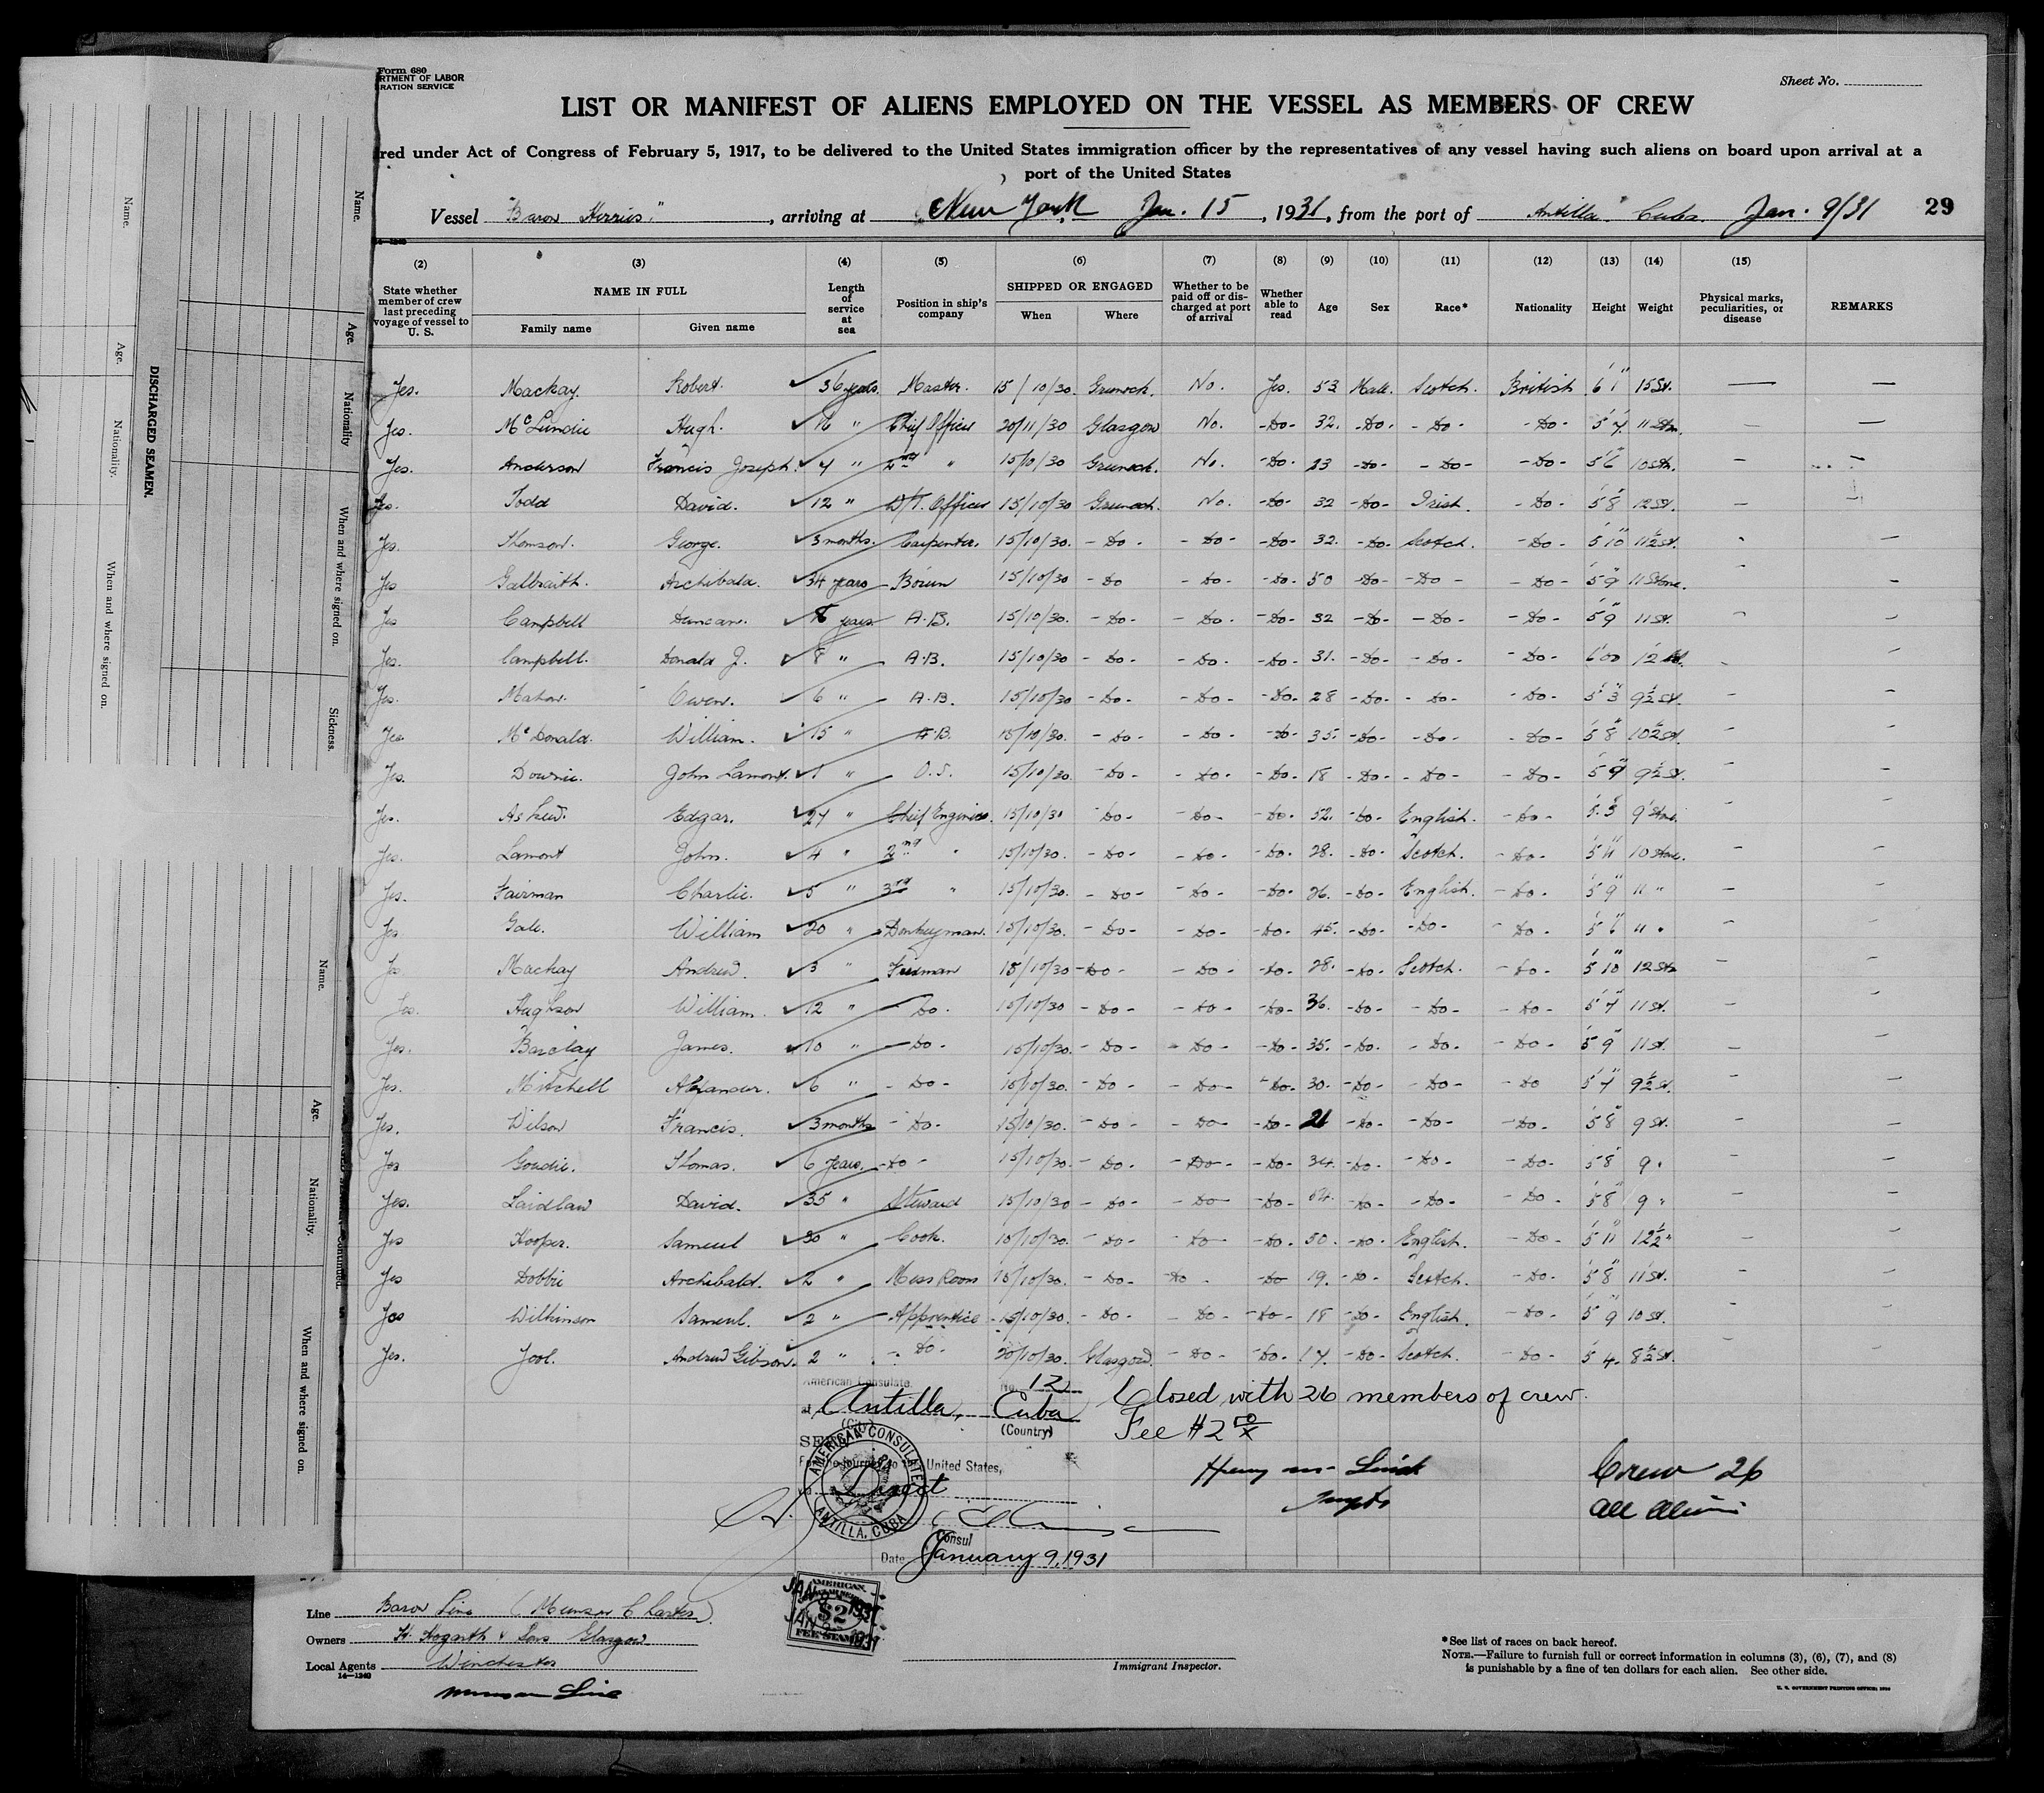 Form 680
RTMENT OF LABOR
RATION SERVICE
Sheet No.
LIST OR MANIFEST OF ALIENS EMPLOYED ON THE VESSEL AS MEMBERS OF CREW
red under Act of Congress of February 5, 1917, to be delivered to the United States immigration officer by the representatives of any vessel having such aliens on board upon arrival at a
port of the United States
Vessel "Baron Herries", arriving at New York Jan. 15, 1931, from the port of Antilla Cuba Jan. 9/31 29
(2) (3) (4) (5) (6) (7) (8) (9) (10) (11) (12) (13) (14) (15)
State whether member of crew last preceding voyage of vessel to U. S. NAME IN FULL Family name Given name Length of service at sea Position in ship's company SHIPPED OR ENGAGED When Where Whether to be paid off or discharged at port of arrival Whether able to read Age Sex Race* Nationality Height Weight Physical marks, peculiarities, or disease REMARKS
Yes. Mackay. Robert. 36 years. Master. 15/10/30. Greenock. No. Yes. 53 Male. Scotch. British 6'1" 15 St. — —
Yes. McLundie Hugh. 16 " Chief Officer 20/11/30 Glasgow No. -Do- 32. -Do- -Do- -Do- 5'7" 11 Stn. — —
Yes. Anderson Francis Joseph. 4 " 2nd " 15/10/30 Greenock. No. -Do- 23 -Do- -Do- -Do- 5'6" 10 Stn. — —
Yes. Todd David. 12 " W/T. Officer 15/10/30 Greenock. No. -Do- 32 -Do- Irish. -Do- 5'8" 12 St. —
Yes. Thomson. George. 3 months. Carpenter. 15/10/30. -Do- -Do- -Do- 32. -Do- Scotch. -Do- 5'10" 11½ St. - —
Yes Galbraith. Archibald. 34 years Bosun 15/10/30 -Do -Do- -Do- 50 -Do- -Do- -Do- 5'9" 11 Stone. —
Yes Campbell Duncan. 8 years A.B. 15/10/30. -Do- -Do- -Do- 32 -Do- -Do- -Do- 5'9" 11 St. — —
Yes. Campbell. Donald J. 8 " A.B. 15/10/30 -Do- -Do- -Do- 31. -Do- -Do- -Do- 6'00 12 St. - —
Yes. Mahon. Owen. 6 " A.B. 15/10/30 -Do- -Do- -Do- 28 -Do- -Do- -Do- 5'3" 9½ St. — —
Yes. McDonald. William. 15 " A.B. 15/10/30. -Do- -Do- -Do- 35. -Do- -Do- -Do- 5'8" 10½ St. — —
Yes. Downie. John Lamont. 1 " O.S. 15/10/30. -Do- -Do- -Do- 18 -Do- -Do- -Do- 5'9" 9½ St. — —
Yes. Askew. Edgar. 27 " Chief Engineer. 15/10/30 -Do- -Do- -Do- 52. -Do- English. -Do- 5'.5" 9 Stone. — —
Yes. Lamont John. 4 " 2nd " 15/10/30. -Do- -Do- -Do- 28. -Do- Scotch. -Do- 5'11" 10 Stone. — —
Yes. Fairman Charlie. 5 " 3rd " 15/10/30. -Do- -Do- -Do- 26. -Do- English. -Do- 5'9" 11 " — —
Yes Gale. William 20 " Donkeyman. 15/10/30. -Do- -Do- -Do- 45. -Do- -Do- -Do- 5'6" 11 " — —
Yes Mackay Andrew. 3 " Fireman 15/10/30 -Do- -Do- -Do- 28. -Do- Scotch. -Do- 5'10" 12 St. — —
Yes. Hughson William. 12 " Do. 15/10/30 -Do- -Do- -Do- 36. -Do- -Do- -Do- 5'7" 11 St. — —
Yes. Barclay James. 10 " -Do- 15/10/30. -Do- -Do- -Do- 35. -Do- -Do- -Do- 5'9" 11 St. — —
Yes. Mitchell Alexander. 6 " -Do- 15/10/30. -Do- -Do- -Do- 30. -Do- -Do- -Do 5'7" 9½ St. — —
Yes. Wilson Francis. 3 months -Do- 15/10/30. -Do- -Do- -Do- 21 -Do- -Do- -Do- 5'8" 9 St. — —
Yes Goudie. Thomas. 6 years. -Do- 15/10/30. -Do- -Do- -Do- 34. -Do- -Do- -Do- 5'8" 9 " — —
Yes. Laidlaw David. 35 " Steward 15/10/30 -Do- -Do- -Do- 54. -Do- -Do- -Do- 5'8" 9 " — —
Yes Hooper. Sameul 30 " Cook. 15/10/30. -Do- -Do- -Do- 50. -Do- English. -Do- 5'11" 12½ " — —
Yes Dobbie Archibald. 2 " Mess Room 15/10/30. -Do- -Do- -Do- 19. -Do- Scotch. -Do- 5'8" 11 St. — —
Yes Wilkinson Sameul. 2 " Apprentice 15/10/30. -Do- -Do- -Do- 18 -Do- English. -Do- 5'9" 10 St. — —
Yes. Yool. Andrew Gibson. 2 " -Do- 20/10/30. Glasgow. -Do- -Do- 17. -Do- Scotch. -Do- 5'4" 8½ St. — —
American Consulate. No. 12
at Antilla, Cuba Closed with 26 members of crew.
(City) (Country) Fee #2
For the journey to the United States,
Direct
AMERICAN CONSULATE
ANTILLA, CUBA
Crew 26
all Aliens
Consul
Date January 9, 1931
AMERICAN
$2
FEE STAMP
JAN 9 1931
JAN 9 1931
Line Baron Line (Munson Charter).
Owners H. Hogarth & Sons Glasgow
Local Agents Winchester
14—1240
Munson Line
Immigrant Inspector.
*See list of races on back hereof.
NOTE.—Failure to furnish full or correct information in columns (3), (6), (7), and (8)
is punishable by a fine of ten dollars for each alien. See other side.
U. S. GOVERNMENT PRINTING OFFICE
DISCHARGED SEAMEN.
Name. Age. Nationality When and where signed on. Sickness.
Name. Age. Nationality. When and where signed on.
Name. Age. Nationality. When and where signed on.
Continued.